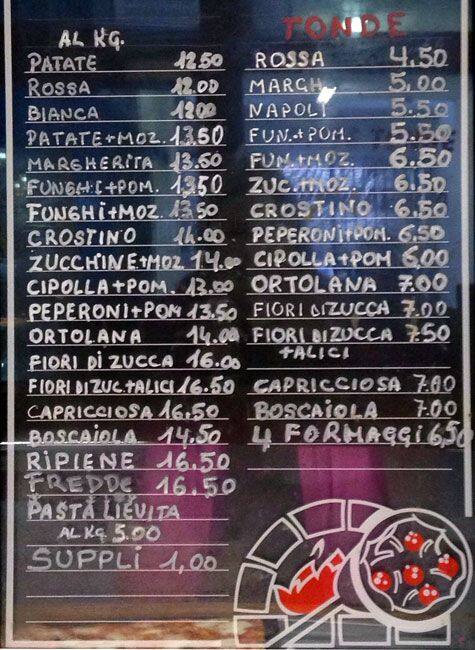 AL KG.
PATATE 12.50
ROSSA 12.00
BIANCA 12.00
PATATE+MOZ. 13.50
MARGHERITA 13.50
FUNGHI+POM. 13.50
FUNGHI+MOZ. 13.50
CROSTINO 14.00
ZUCCHINE+MOZ 14.00
CIPOLLA+POM. 13.00
PEPERONI+POM 13.50
ORTOLANA 14.00
FIORI DI ZUCCA 16.00
FIORI DI ZUC.+ALICI 16.50
CAPRICCIOSA 16.50
BOSCAIOLA 14.50
RIPIENE 16.50
FREDDE 16.50
PASTA LIEVITA
AL KG 5.00
SUPPLI 1,00
TONDE
ROSSA 4.50
MARGH. 5,00
NAPOLI 5.50
FUN.+POM. 5.50
FUN.+MOZ. 6.50
ZUC.+MOZ. 6.50
CROSTINO 6,50
PEPERONI+POM. 6,50
CIPOLLA+POM 6,00
ORTOLANA 7.00
FIORI DI ZUCCA 7.00
FIORI DI ZUCCA 7.50
+ALICI
CAPRICCIOSA 7.00
BOSCAIOLA 7.00
4 FORMAGGI 6,50